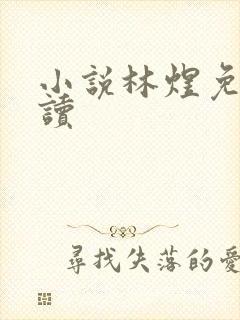 小說林煌免
讀
尋找失落的愛